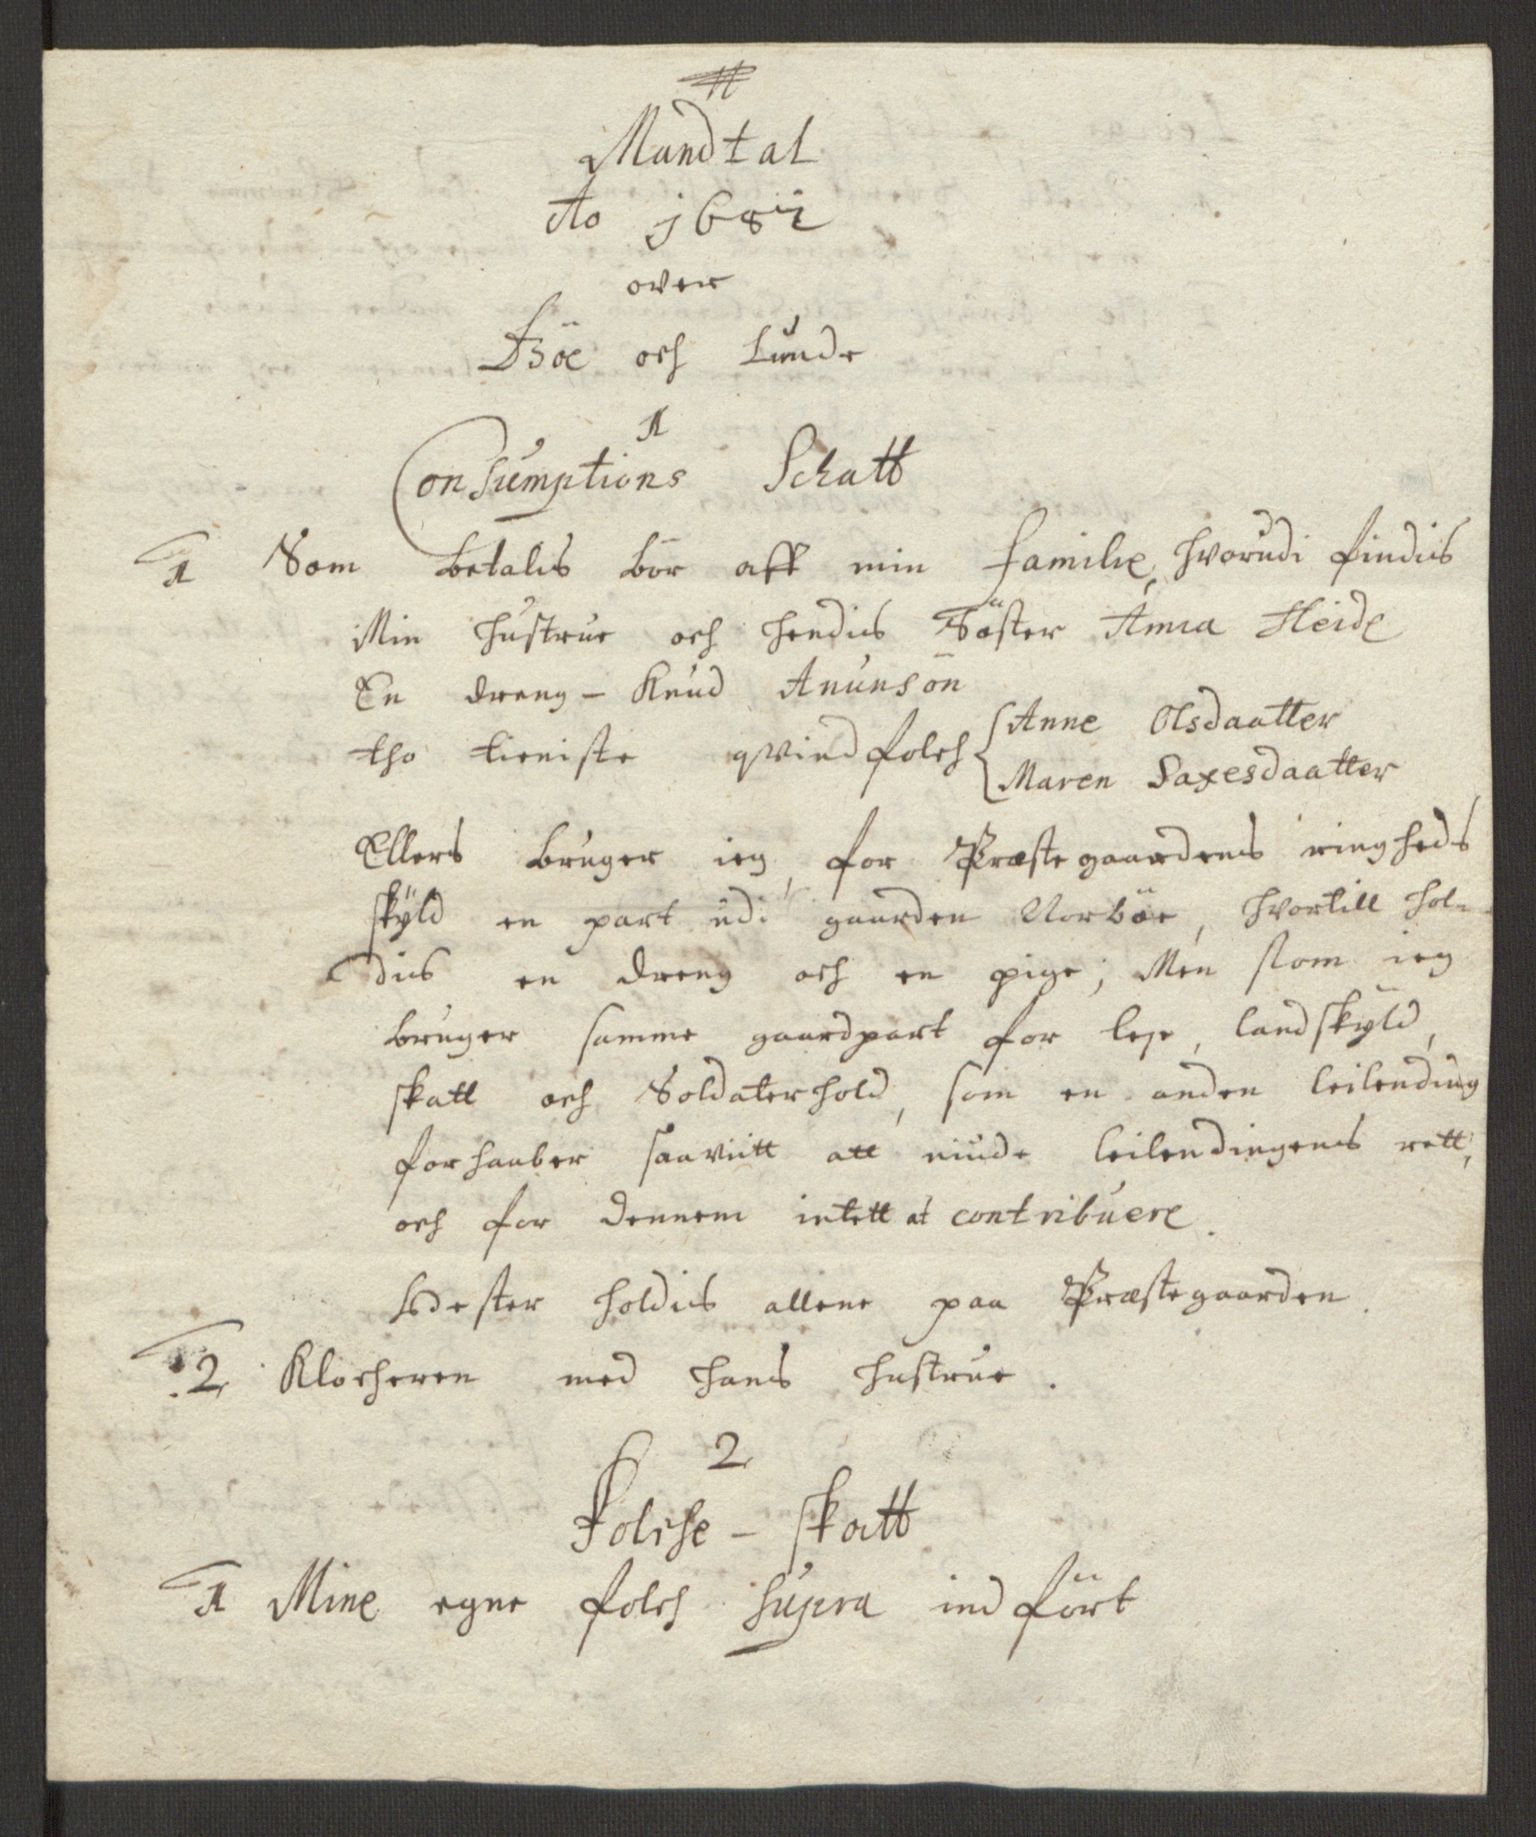 Mandtal
Ao 1682
over
Böe och Lunde
1
Consumptions Schatt
1 Som betalis bör aff min Familie, hvorudi findis
Min hustrue och hendis Söster Anna Heide
En dreng - Knud Anunsön
tho tieniste qvindfolch { Anne Olsdaatter
Maren Saxesdaatter
Ellers bruger ieg, for Præstegaardens ringheds
skÿld en part udi gaarden Norböe, hvortill hol-
dis en dreng och en pige; Men som ieg
bruger samme gaardpart for leje, landskÿld,
skatt och Soldaterhold, som en anden leilending
forhaaber saaviitt att niude leilendingens rett,
och for dennem intett at contribuere.
Hester holdis allene paa Præstegaarden.
2 Klocheren med hans hustrue.
2
Folche - skatt
1 Mine egne folch supra indfört